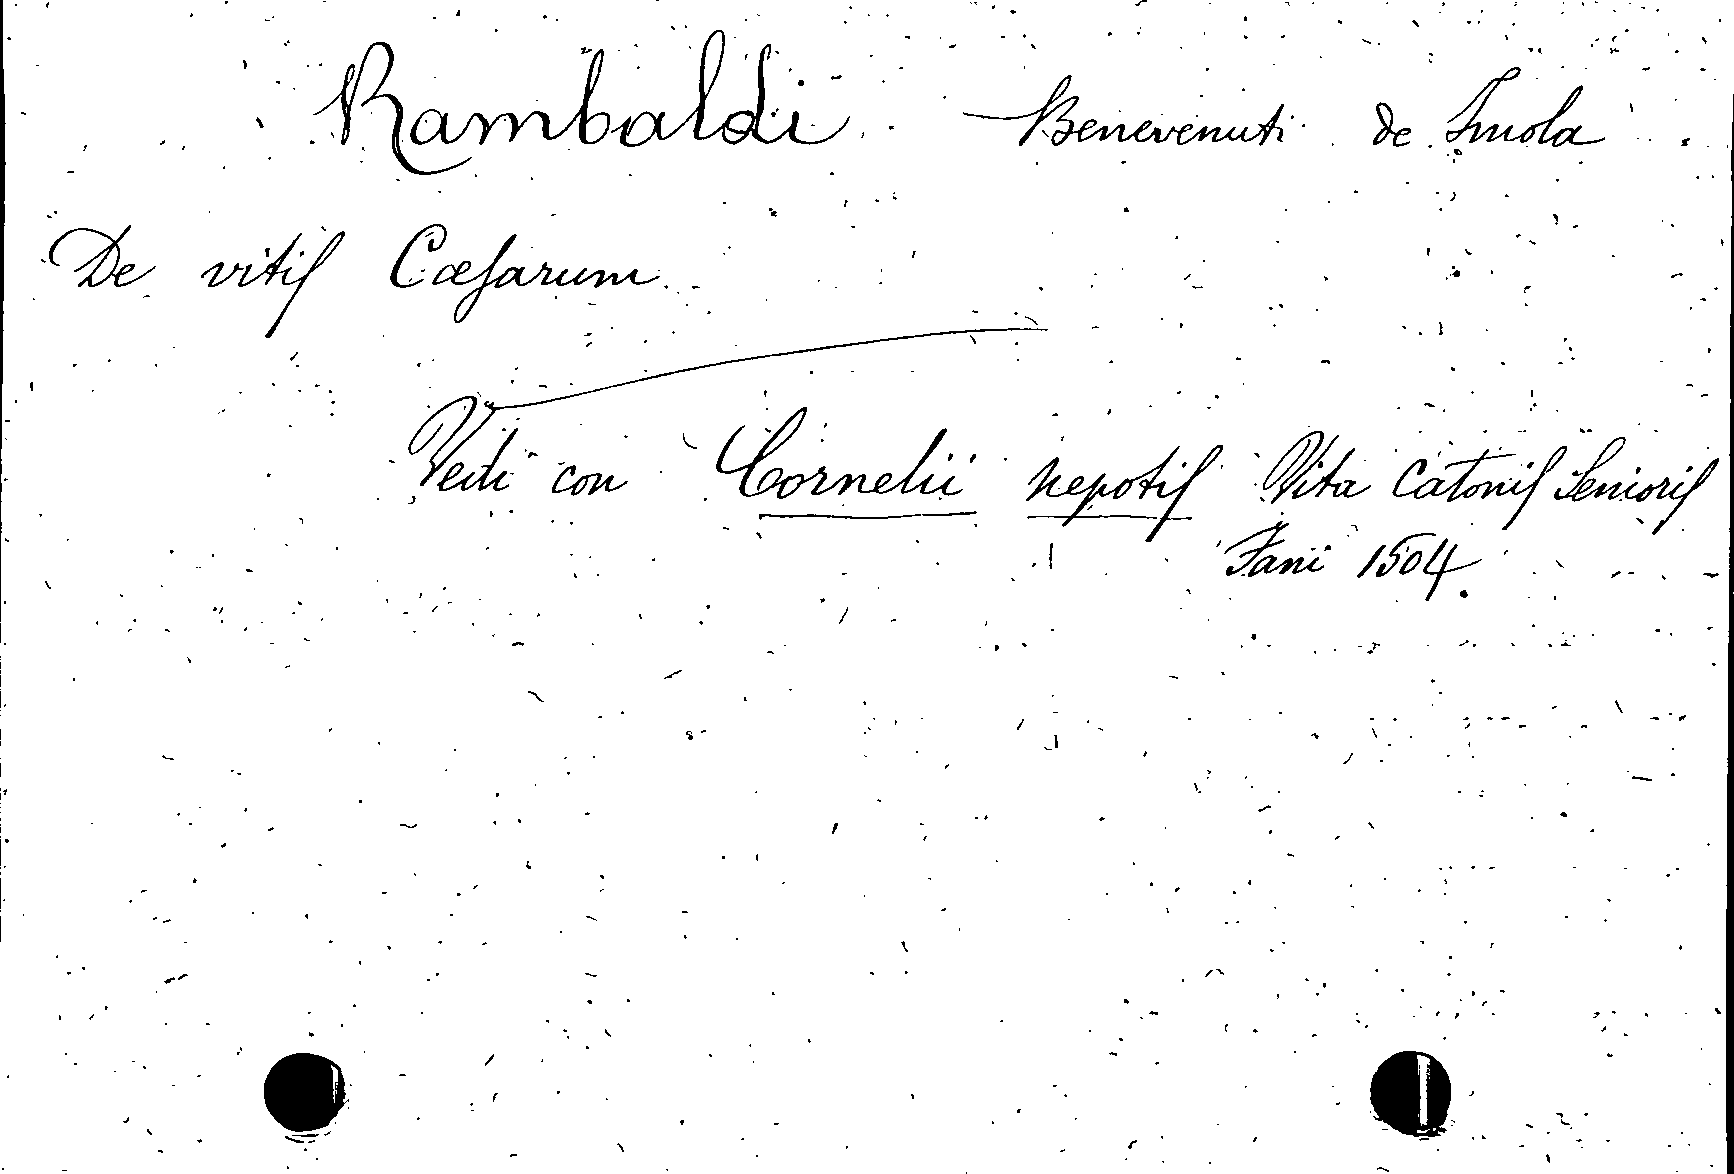 Rambaldi Benevenuti de Imola
De vitiſ Cæſarum
Vedi con Cornelii nepotiſ Vita Catoniſ Senioriſ
Fani 1504.